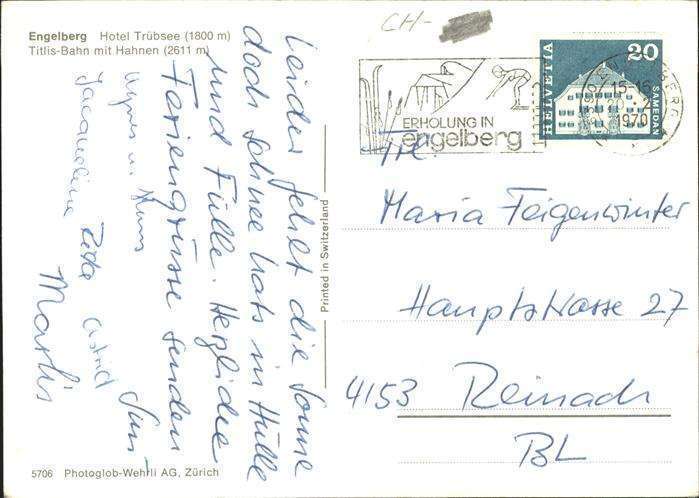 Engelberg Hotel Trübsee (1800 m)
Titlis-Bahn mit Hahnen (2611 m)
Leider fehlt die Sonne
doch Schnee hats in Hülle
und Fülle. Herzliche
Feriengrüsse senden
Susi
Jacqueline Rita Astrid
Marlis
5706 Photoglob-Wehrli AG, Zürich
Printed in Switzerland
CH-
ERHOLUNG IN
engelberg
HELVETIA
20
SAMEDAN
15-16
20.
1970
Frl.
Maria Feigenwinter
Hauptstrasse 27
4153 Reinach
BL